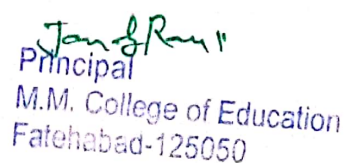 Principal
M.M. College of Education
Fatehabad-125050